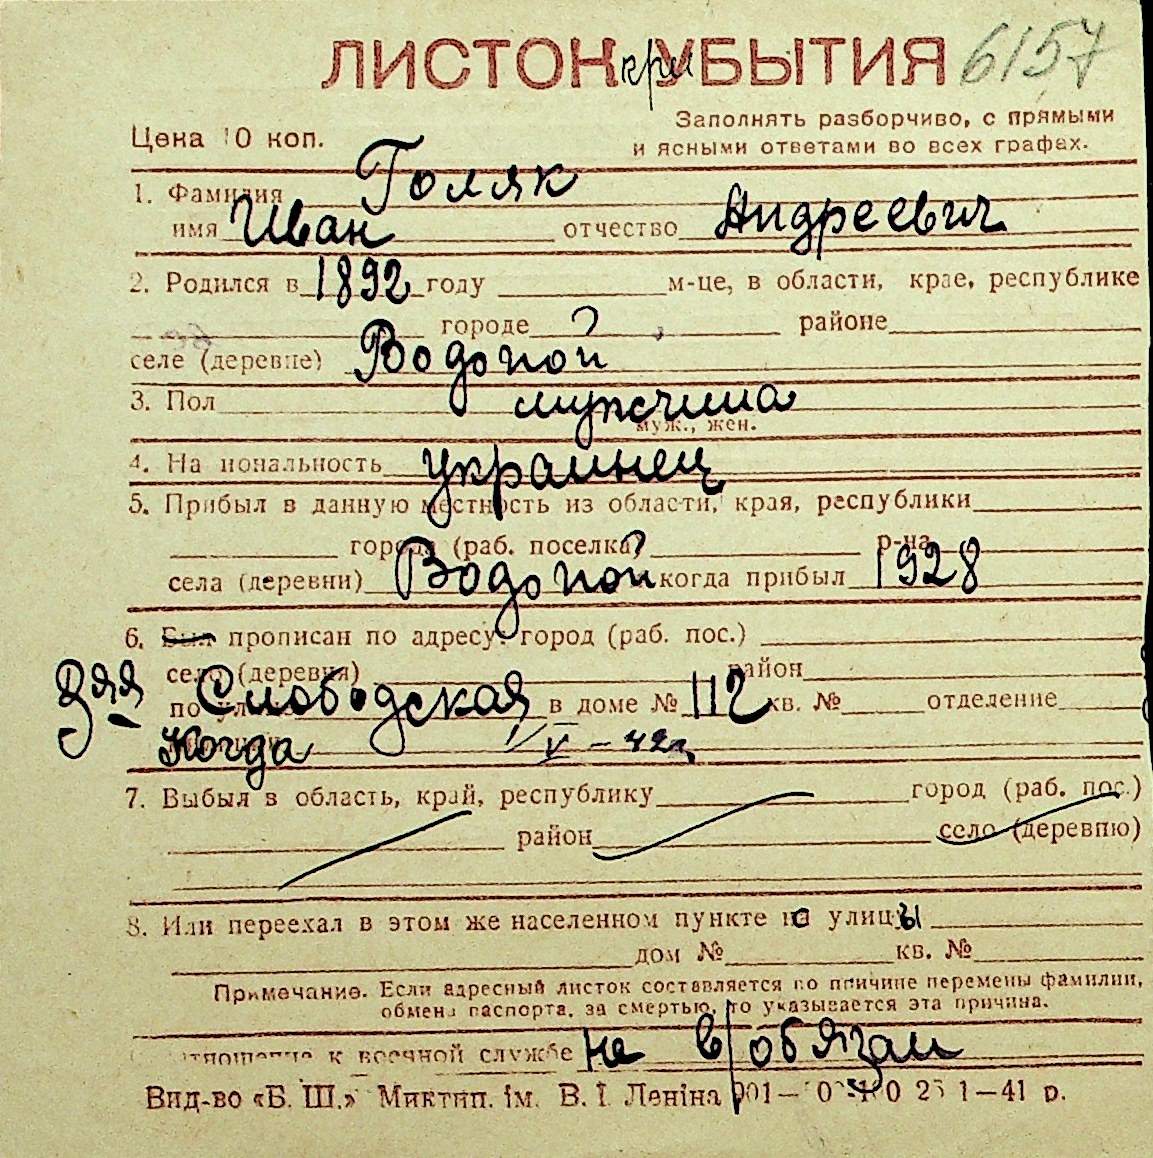 ЛИСТОК при УБЫТИЯ 6157
Цена 10 коп.
Заполнять разборчиво, с прямыми
и ясными ответами во всех графах.
1. Фамилия Голяк
имя Иван отчество Андреевич
2. Родился в 1892 году м-це, в области, крае, республике
городе ? районе
селе (деревне) Водопой
3. Пол мужчина
муж., жен.
4. Национальность украинец
5. Прибыл в данную местность из области, края, республики
города (раб. поселка) ? р-на
села (деревни) Водопой когда прибыл 1928
6. Был прописан по адресу: город (раб. пос.)
село (деревня) район
3яя Слободская в доме № 112 кв. № отделение
Когда 1/V – 42г
7. Выбыл в область, край, республику город (раб. пос.)
район село (деревню)
8. Или переехал в этом же населенном пункте с улицы
дом № кв. №
Примечание. Если адресный листок составляется по причине перемены фамилии,
обмена паспорта, за смертью, то указывается эта причина.
отношение к военной службе не в/обязан
Вид-во «Б. Ш.» Миктип. ім. В. І. Леніна 1—41 р.